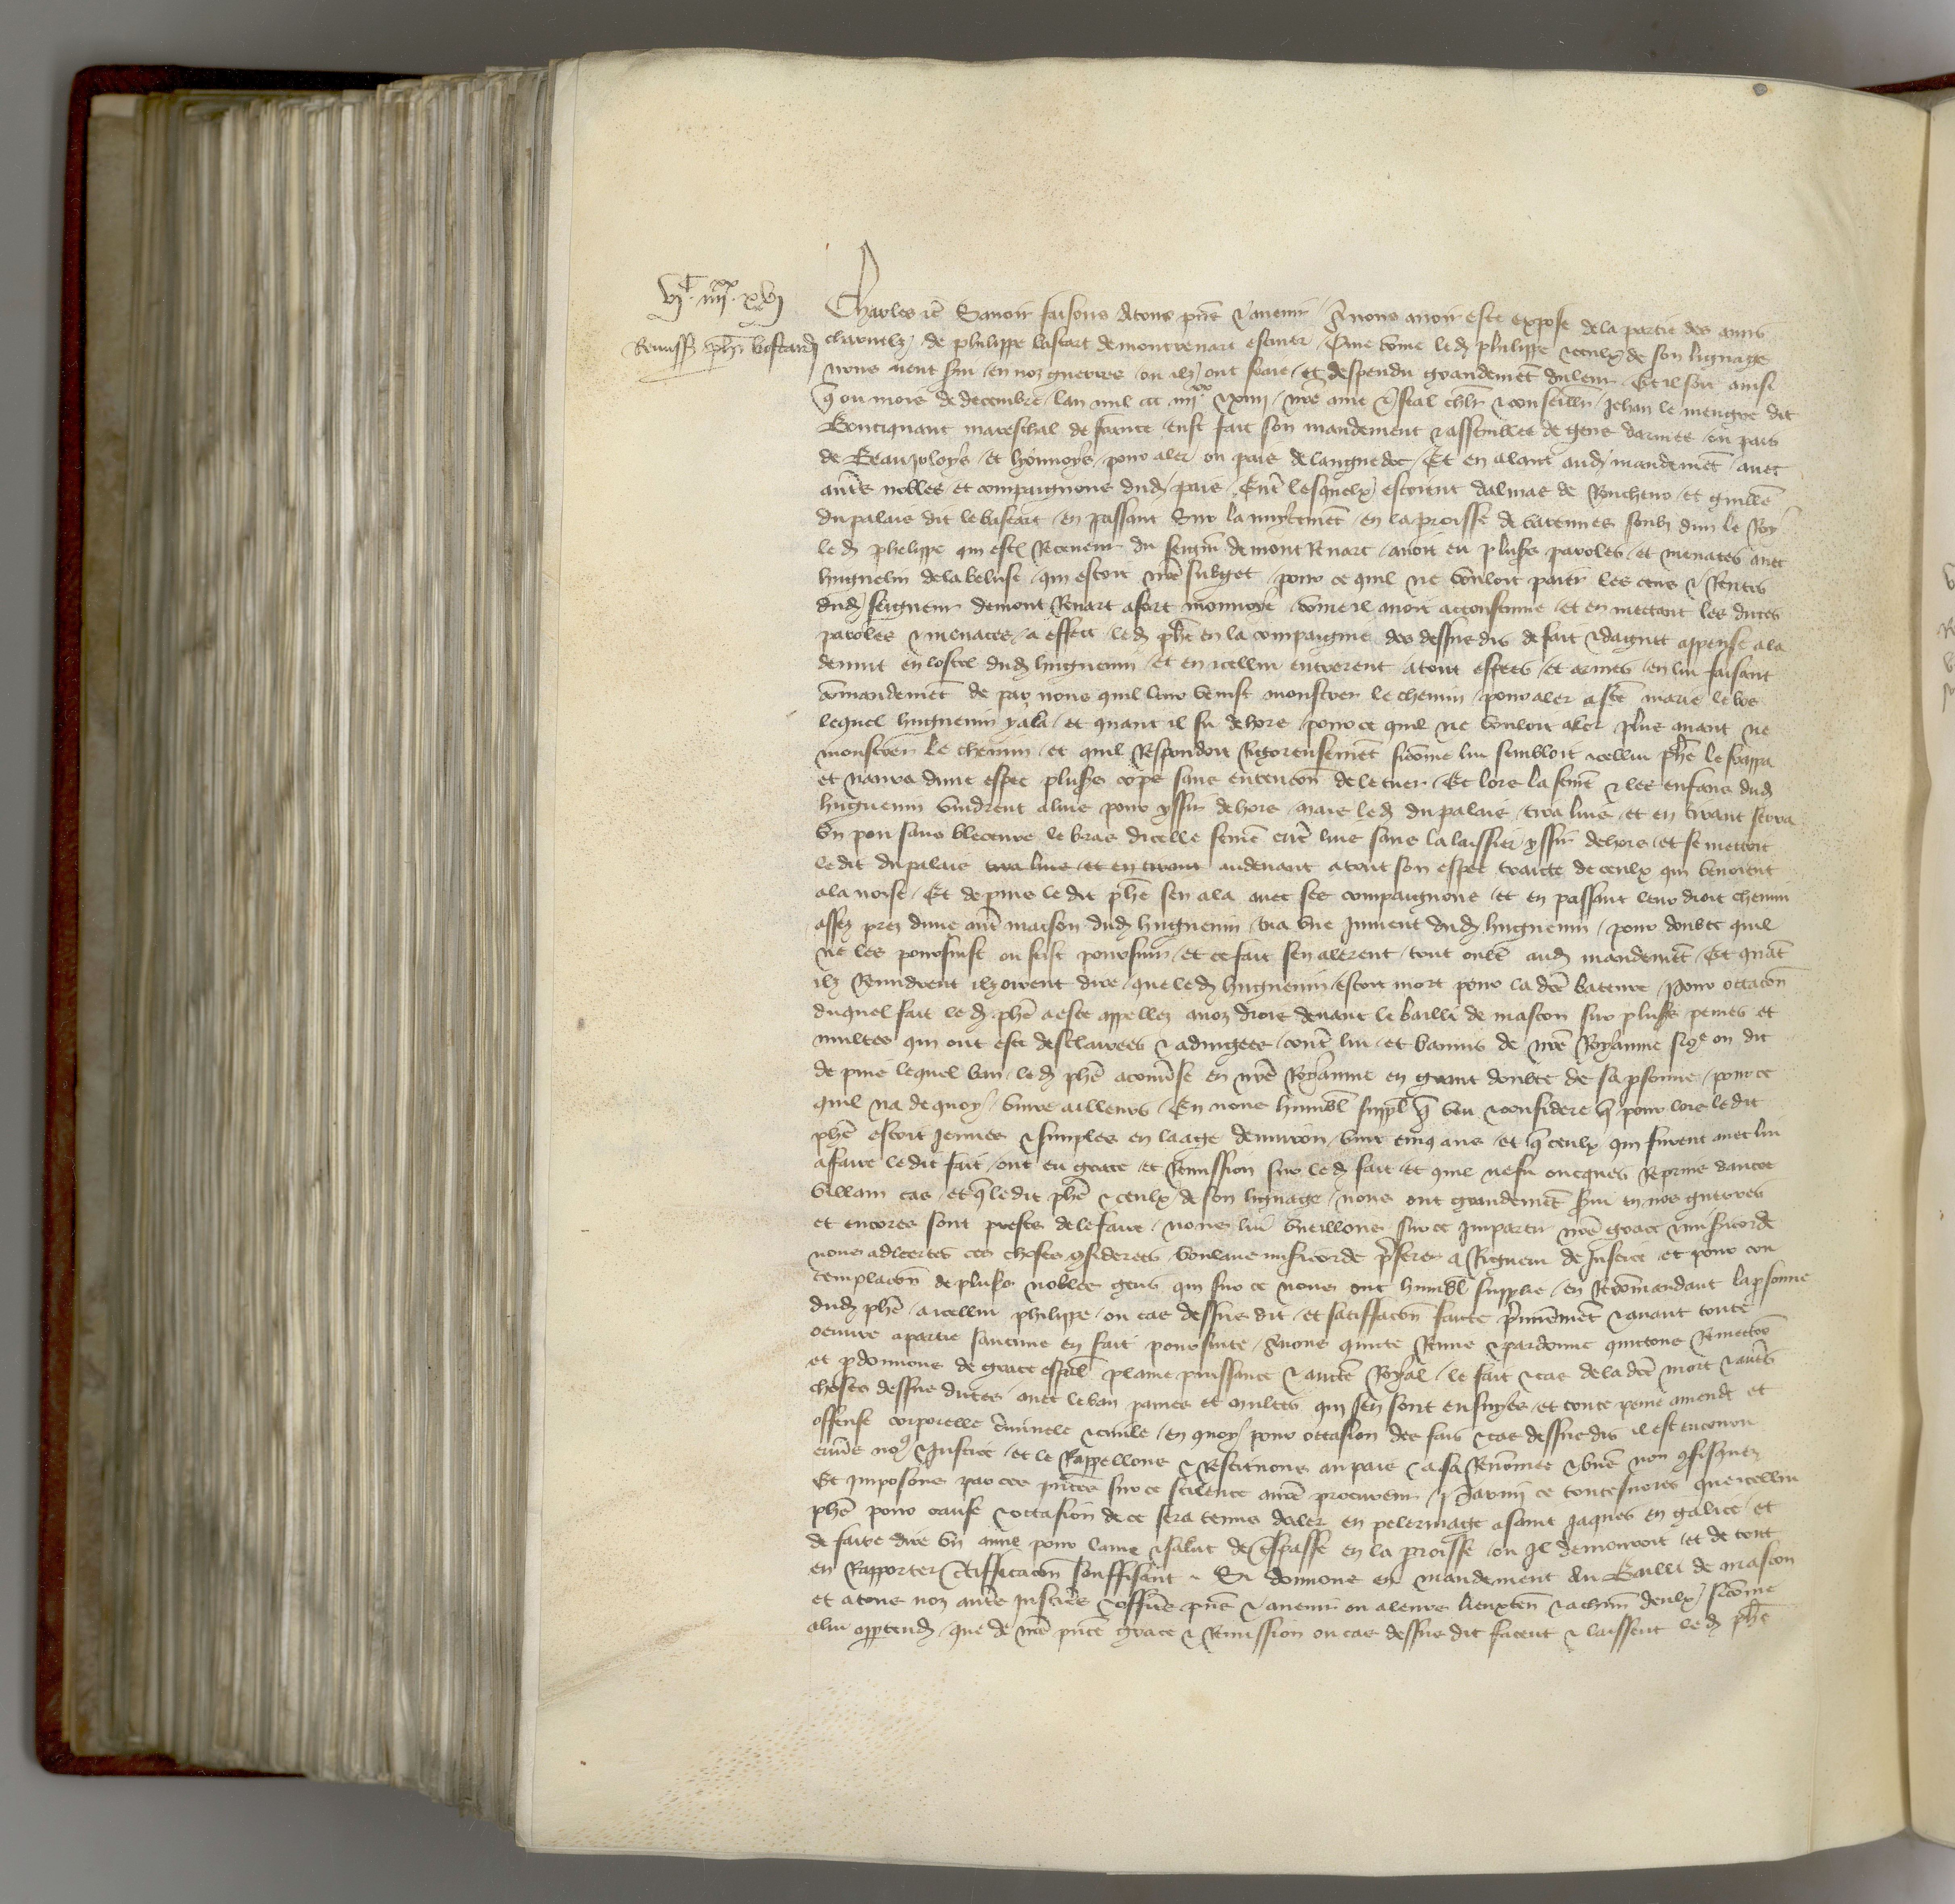 VIᶜ IIIIˣˣ XVI
Remissio Ph̃e bastard
Charles etc̃ Savoir faisons A tous pñs & avenir A nous avoir este expose de la partie des amis
charnelz de philippe bastart de montrenart escuier Que cõme led philippe & ceulx de son lignage
nous aient s̃vi en noz guerres ou ilz ont fraié et despendu grandemẽt du leur Et il soit ainsi
q̃ ou mois de decembre lan mil ccc iiiiˣˣ & xiiii nr̃e amé & feal chlr & conseillr Jehan le meingre dit
Bouciquaut mareschal de france eust fait son mandement & assemblee de gens darmes ou pais
de Beaujoloys et lionnoys pour aler ou pais de languedoc Et en alant aud mandemẽt avec
autr̃s nobles et compaignons dud pais Entr̃ lesquelx estoient dalmas de et guillẽ
du palais dit le bastart en passant sur la nuytemẽt en la p̃roisse de varennes soubz dun le Roy
led phelippe qui est Receveur du seign̄r de mont Renart avoit eu plus̃s paroles et menaces avec
huguelin de la beluse qui estoit nr̃e subget pour ce quil ne vouloit paier les cens & Rentes
dud seigneur de mont Renart a fort monnoye cõme il avoit acconstume et en mectant les dictes
paroles & menaces a effect led ph̃e en la compaignie des dessusdis de fait & daguet appense ala
denuit en lostel dud huguenin et en icellui entrerent atout espees et armes en lui faisant
cõmandemẽt de par nous quil leur venist monstrer le chemin pour aler a sc̃e marie le bos
lequel huguenin y ala et quant il fu dehors pour ce quil ne vouloit aler plus avant ne
monstrer le chemin et quil Respondoit Rigoreusemẽt sicõme lui sembloit icellui ph̃e le frappa
et navra dune espee plus̃s cops sans entencõn de le tuer Et lors la fem̃e & les enfans dud
huguenin vindrent a luis pour yssir dehors mais led du palais tira luis et en tirant serra
un pou sans bleceure le bras dicelle fem̃e entr̃ luis sans la laissier yssir dehors et se mettoit
ledit du palais tira luis et en tirant audevant atout son espee traicte de ceulx qui venoient
ala noise Et depuis ledit ph̃e sen ala avec ses compaignons et en passant leur droit chemin
assez prez dune autr̃ maison dud huguenin tua une jument dud huguenin pour doubte quil
ne les poursuist ou feist poursuir et ce fait sen alerent tout oultr̃ aud mandemẽt Et quãt
ilz Revindrent ilz oirent dire que led huguenin estoit mort pour la dc̃e bateure Pour occacõn
duquel fait led ph̃e a este appellez a noz drois devant le bailli de mascon sur plus̃s peines et
multes qui ont este desclairees & adjugees contr̃ lui et bannis de nr̃e Royaume sicõe on dit
depuis lequel ban led ph̃e a convs̃e en nr̃e Royaume en grant doubte de sa p̃sonne pour ce
quil na de quoy vivre ailleurs En nous humbl̃ suppl̃ q̃ veu & considere q̃ pour lors ledit
ph̃e estoit jeunes & simples en laage denviron vint cinq ans et q̃ ceulx qui furent avec lui
a faire ledit fait ont eu grace et Remission sur led fait et quil ne fu oncques Reprins dautre
villain cas et q̃ ledit ph̃e & ceulx de son lignage nous ont grandemẽt s̃vi en nos guerres
et encores sont prests de le faire nous lui vueillons sur ce impartir nr̃e grace & mis̃icorde
nous adcertes ces choses 9siderees voulans mis̃icorde p̃ferer a Rigueur de justice et pour con
templacõn de plus̃s nobles gens qui sur ce nous ont humbl̃ supplie en Recõmandant la p̃sonne
dud ph̃e a icellui philippe ou cas dessus dit et satiffacõn faicte p̃mieremẽt & avant toute
oeuvre a partie sancune en fait poursuite Avons quicte Remis & pardonne quictons Remectõs
et p̃donnons de grace esp̃al plaine puissance & aucte Royal le fait & cas de la dc̃e mort & autr̃s
choses dessus dictes avec le ban paines et multes qui sen sont ensuyes et toute peine amende et
offense corporelle c̃iminele & civile en quoy pour occasion des fais & cas dessusdis il est encouru
envers no9 & justice et le Rappellons & Restituons au pais & a sa Renõmee & biẽs non 9fisquez
Et imposons par ces p̃ntes sur ce scilence a nr̃e procureur Parmi ce toutesvoies que icellui
ph̃e pour cause & occasion de ce sera tenus daler en pelerinage a saint jaques en galice et
de faire dire un annl pour lame & salut de trespasse en la p̃roisse ou il demouroit et de tout
en Rapporter c̃tifficacõn souffisant Si donnons en mandement Au Bailli de mascon
et a tous noz autr̃s justicrs & offic̃rs p̃ns & avenir ou a leurs lieuxten̄ & a chũn deulx sicõme
a lui app̃tendr̃ que de nr̃e p̃nte grace & Remission ou cas dessus dit facent & laissent led ph̃e